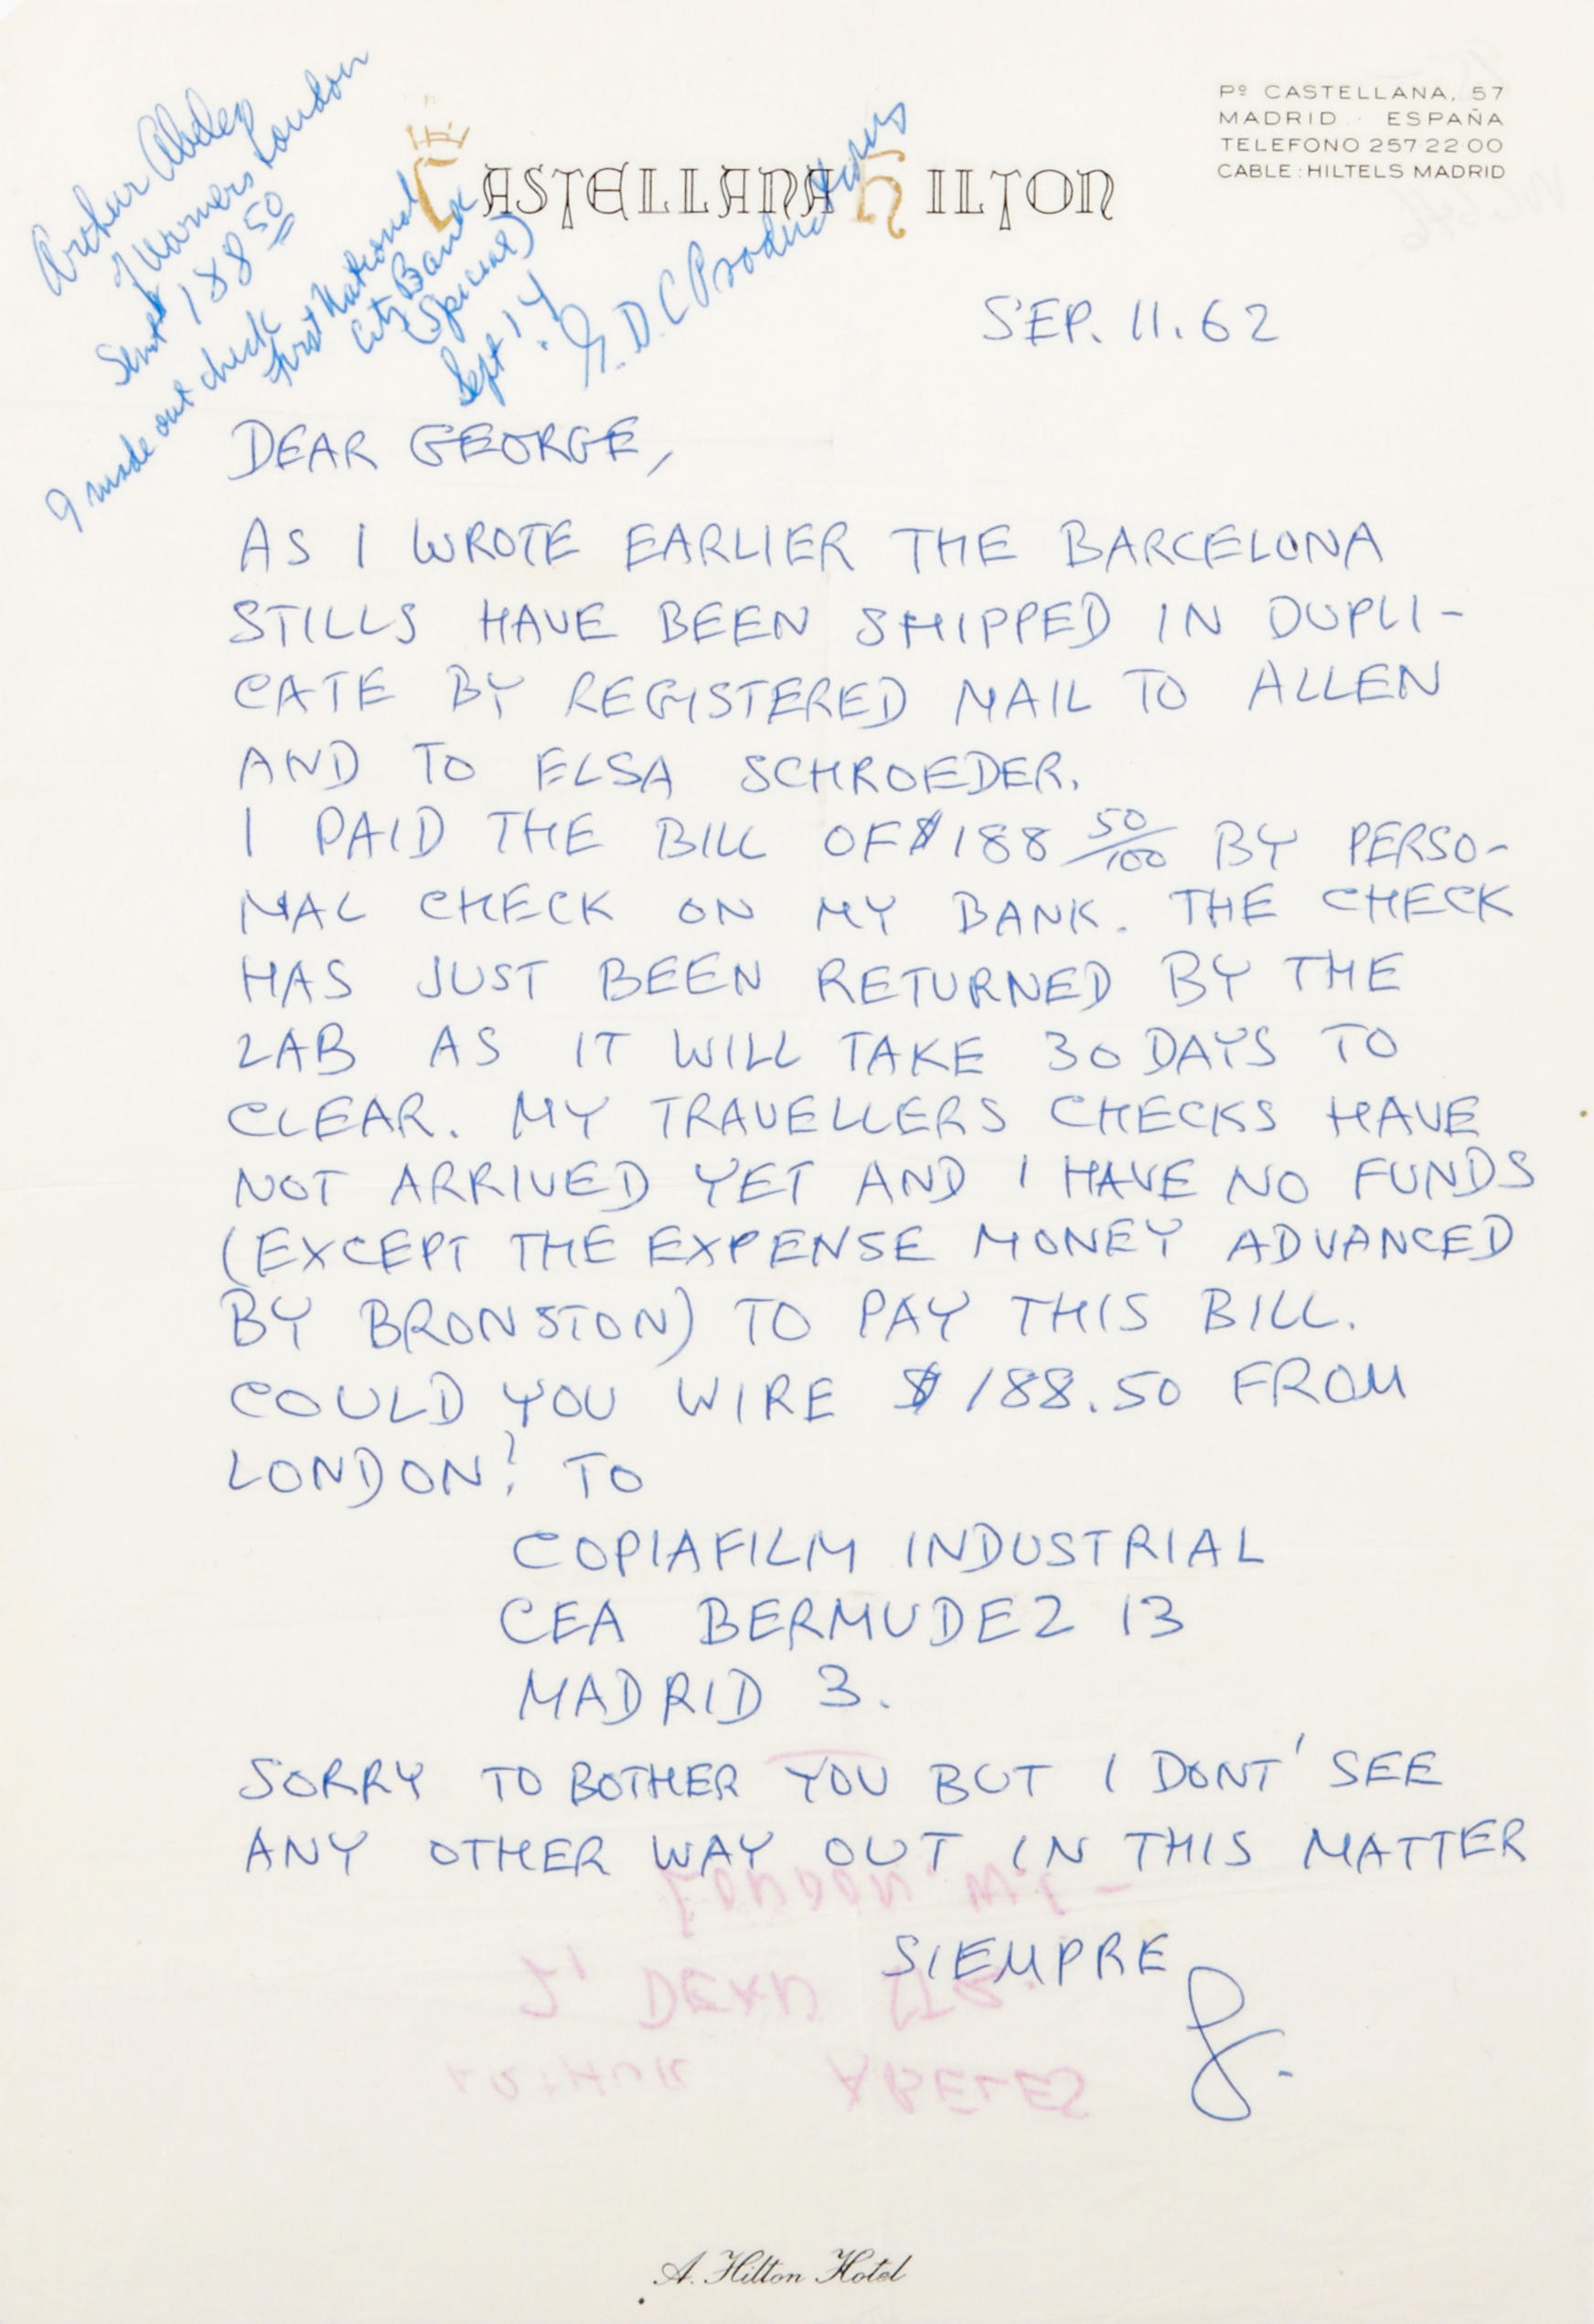 Pº CASTELLANA, 57
MADRID · ESPAÑA
TELEFONO 257 22 00
CABLE : HILTELS MADRID
CASTELLANA HILTON
Arthur
of Warners London
Sent 188 50
I made out check
First National
City Bank
(Special)
Sept 14.
G.D.C Productions
SEP. 11. 62
DEAR GEORGE,
AS I WROTE EARLIER THE BARCELONA
STILLS HAVE BEEN SHIPPED IN DUPLI-
CATE BY REGISTERED MAIL TO ALLEN
AND TO ELSA SCHROEDER.
I PAID THE BILL OF $188 50/100 BY PERSO-
NAL CHECK ON MY BANK. THE CHECK
HAS JUST BEEN RETURNED BY THE
LAB AS IT WILL TAKE 30 DAYS TO
CLEAR. MY TRAVELLERS CHECKS HAVE
NOT ARRIVED YET AND I HAVE NO FUNDS
(EXCEPT THE EXPENSE MONEY ADVANCED
BY BRONSTON) TO PAY THIS BILL.
COULD YOU WIRE $188.50 FROM
LONDON? TO
COPIAFILM INDUSTRIAL
CEA BERMUDEZ 13
MADRID 3.
SORRY TO BOTHER YOU BUT I DONT' SEE
ANY OTHER WAY OUT IN THIS MATTER
SIEMPRE
A. Hilton Hotel